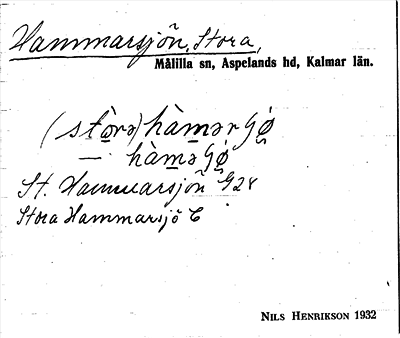 Hammarsjön, Stora,
Målilla sn, Aspelands hd, Kalmar län.
(stò̱rə) hàm̱ər
— hàm̱ə
St. Hammarsjön
Stora Hammarsjö C
NILS HENRIKSON 1932